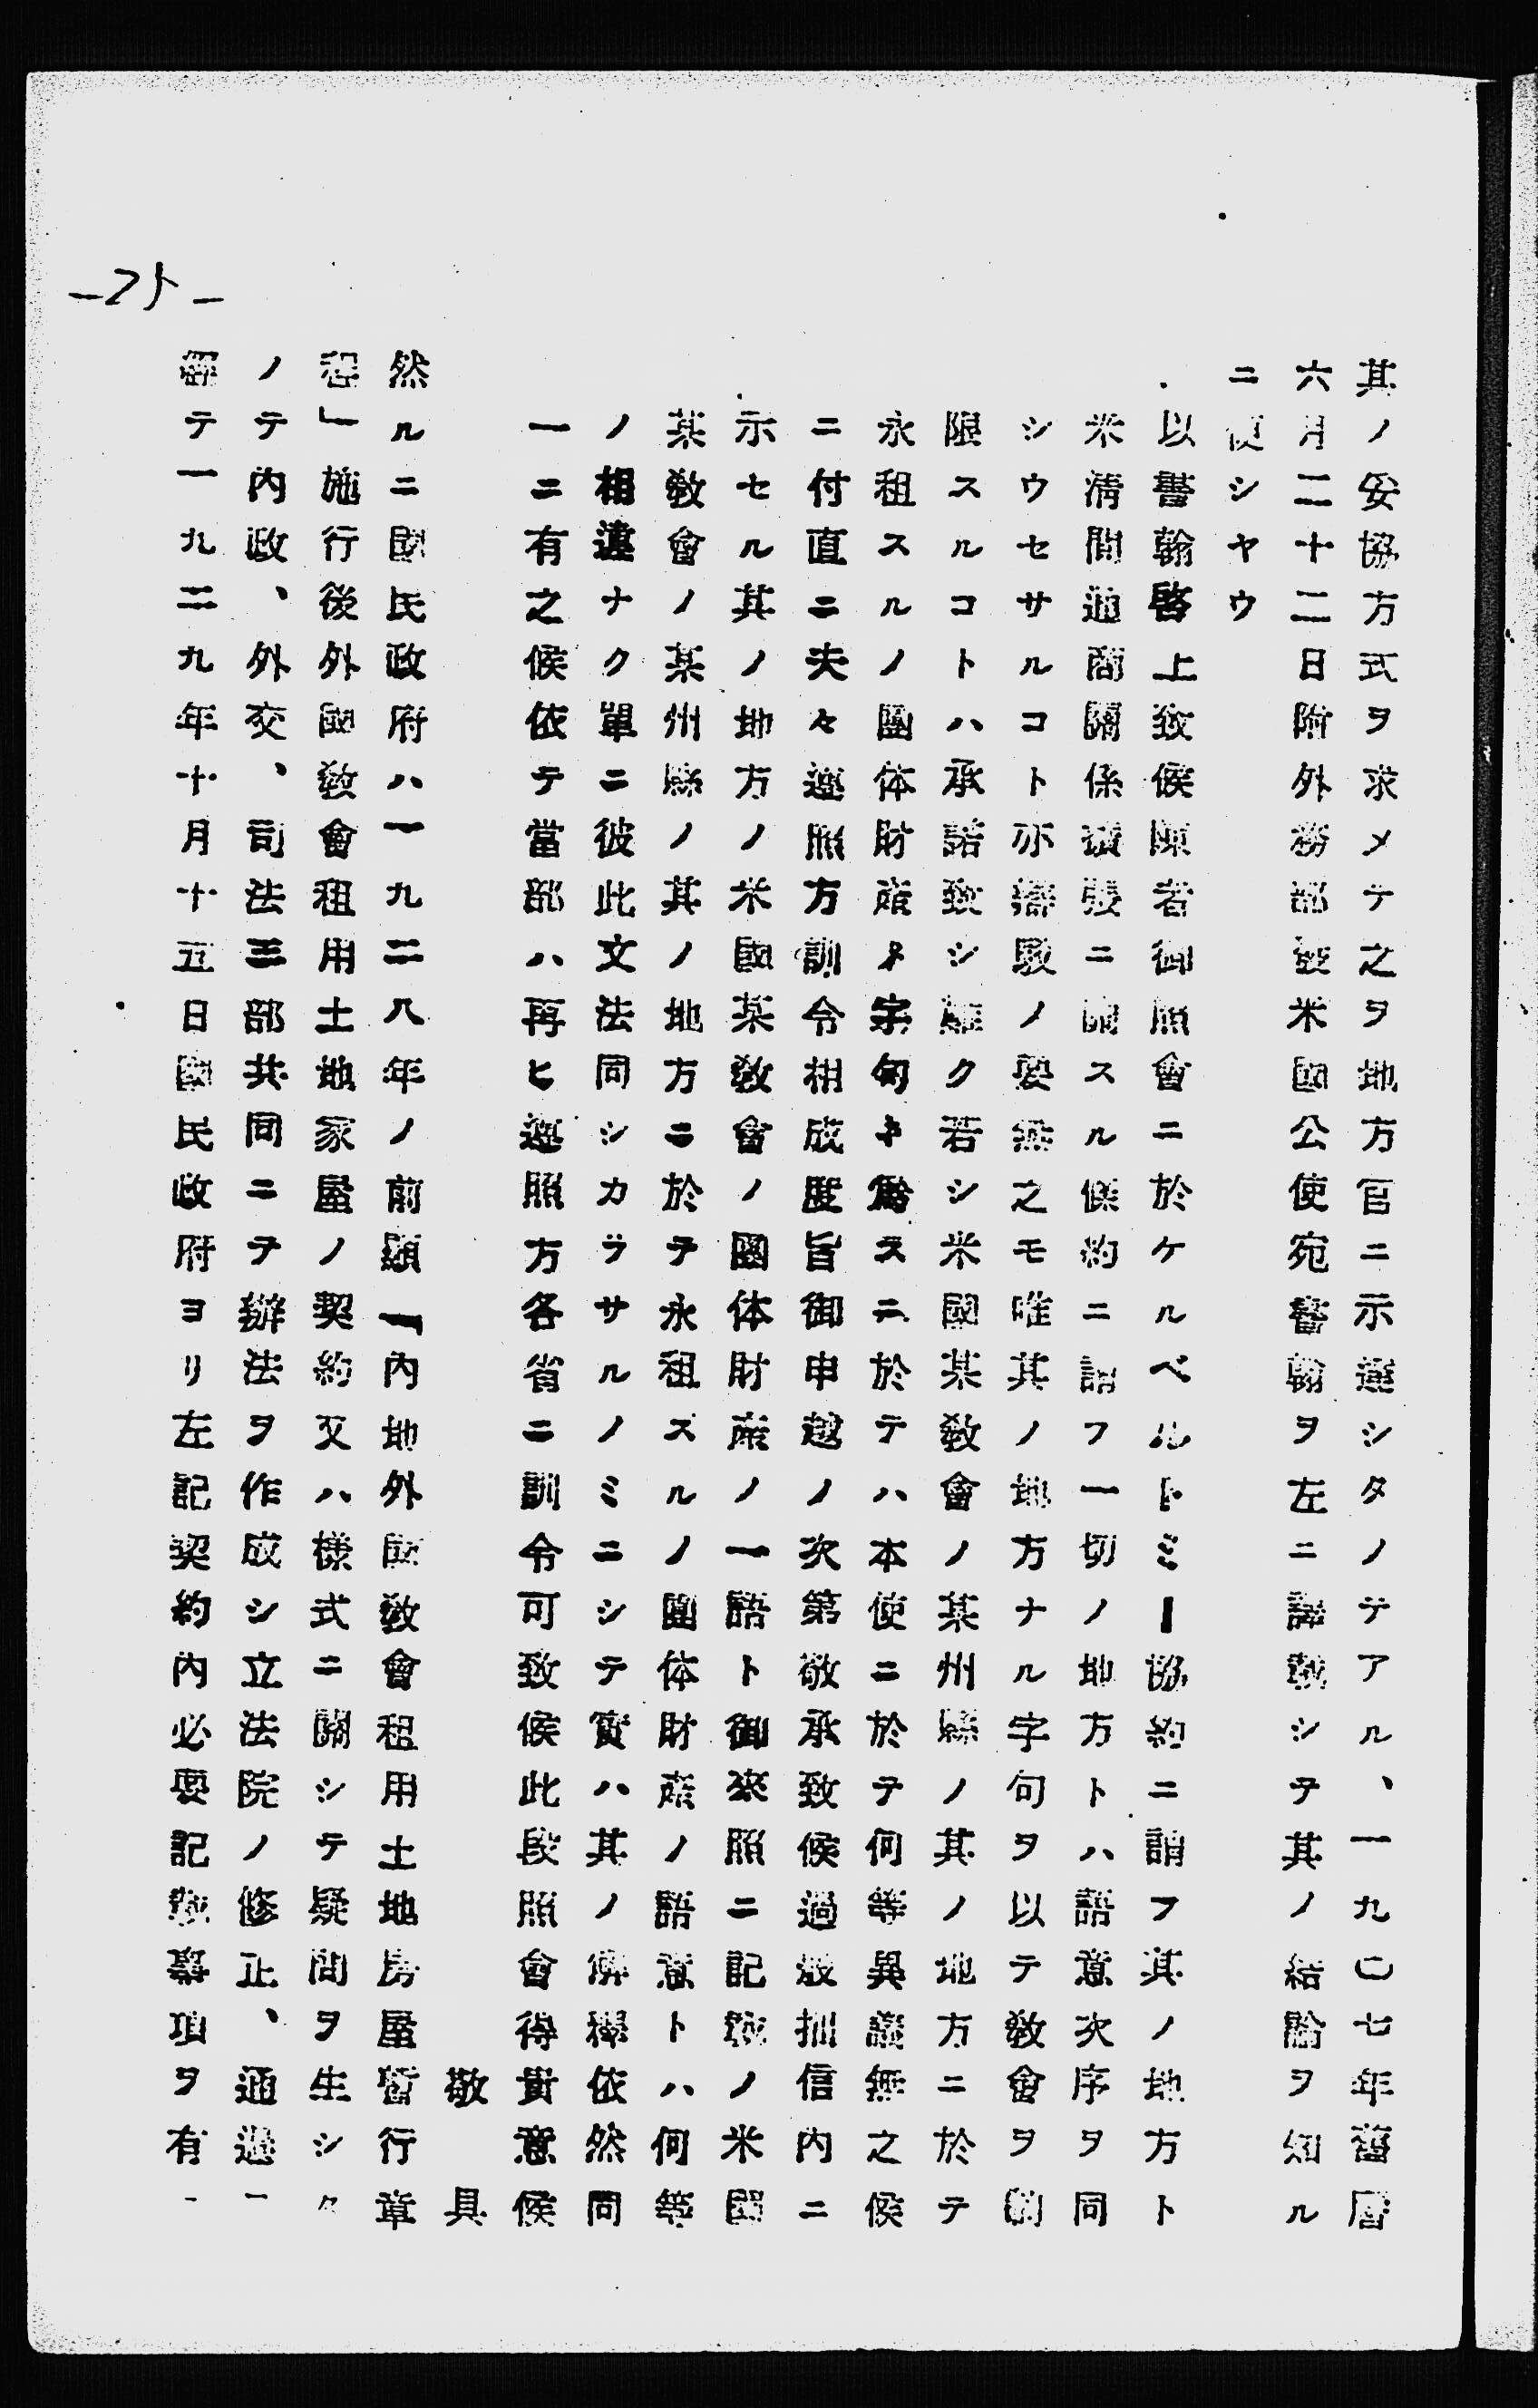 其ノ妥協方式ヲ求メテ之ヲ地方官ニ示達シタノテアル、一九〇七年舊曆
六月二十二日附外務部發米國公使宛書翰ヲ左ニ譯載シテ其ノ結論ヲ知ル
ニ便シヤウ
以書翰啓上致候陳者御照會ニ於ケルベルトミー協約ニ謂フ其ノ地方ト
米淸間通商關係擴張ニ關スル條約ニ謂フ一切ノ地方トハ語意次序ヲ同
シウセサルコト亦辯駁ノ要無之モ唯其ノ地方ナル字句ヲ以テ敎會ヲ制
限スルコトハ承諾致シ難ク若シ米國某敎會ノ某州縣ノ其ノ地方ニ於テ
永租スルノ團体財產ノ字句ヲ爲スニ於テハ本使ニ於テ何等異議無之候
ニ付直ニ夫々遵照方訓令相成度旨御申越ノ次第敬承致候過般拙信內ニ
示セル其ノ地方ノ米國某敎會ノ團体財產ノ一語ト御來照ニ記載ノ米國
某敎會ノ某州縣ノ其ノ地方ニ於テ永租スルノ團体財產ノ語意トハ何等
ノ相違ナク單ニ彼此文法同シカラサルノミニシテ實ハ其ノ解釋依然同
一ニ有之候依テ當部ハ再ヒ遵照方各省ニ訓令可致候此段照會得貴意候
敬具
然ルニ國民政府ハ一九二八年ノ前顯「內地外國敎會租用土地房屋暫行章
程」施行後外國敎會租用土地家屋ノ契約又ハ樣式ニ關シテ疑問ヲ生シタ
ノテ內政、外交、司法三部共同ニテ辦法ヲ作成シ立法院ノ修正、通過ー
經テ一九二九年十月十五日國民政府ヨリ左記契約內必要記載事項ヲ有ー
-25-